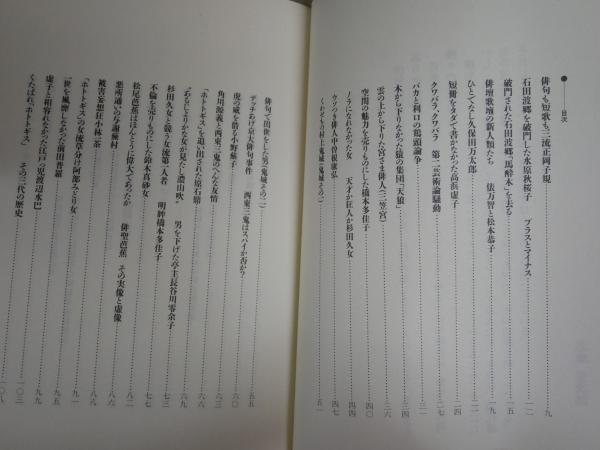 目次
俳句も短歌も三流正岡子規……九
石田波郷を破門した水原秋桜子 プラスとマイナス……一二
破門された石田波郷「馬酔木」を去る……一五
俳壇歌壇の新人類たち 俵万智と松本恭子……一九
ひとでなし久保田万太郎……二一
短冊をタダで書かなかった高浜虚子……二四
クワバラ、クワバラ 第二芸術論騒動……二七
バカと利口の鶏頭論争……三一
木から下りなかった猿の集団「天狼」……三四
雲の上から下りた宮さま俳人(三笠宮)……三六
空間の魅力を売りものにした橋本多佳子……四〇
ノラになれなかった女 天才か狂人か杉田久女……四四
ウソつき俳人中曽根康弘……四七
くわせもの村上鬼城(鬼城その一)……五一
俳句で出世をした男(鬼城その二)……五五
デッチあげ京大俳句事件 西東三鬼はスパイか否か?……
虎の威を借るし野蘇子……六〇
角川源義と西東三鬼のへんな友情……六三
「ホトトギス」を追い出された原石鼎……六六
“あるじよりかな女が見たし濃山吹” 男を下げた亭主長谷川零余子……六九
杉田久女と競う女流第一人者 明眸橋本多佳子……七三
不倫を売りものにした鈴木真砂女……七七
松尾芭蕉はほんとうに偉大であったか 俳聖芭蕉 その実像と虚像……八二
悪所通いの与謝蕪村……八六
被害妄想狂小林一茶……八八
「ホトトギス」の女流草分け阿部みどり女……九一
一世を風靡しなかった前田普羅……九五
虚子と相容れなかった江戸っ児渡辺水巴……九九
くたばれ、ホトトギス」 その三代の歴史……一〇三
一〇八